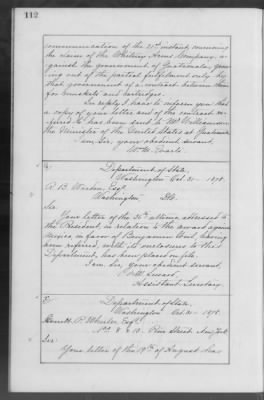 112
communication of the 21st instant, concerning
the claim of the Whitney Arms Company, a-
gainst the government of Guatemala, grow-
ing out of the partial fulfilment only by
that government of a contract between them
for muskets and cartridges.
In reply, I have to inform you that
a copy of your letter and of the contract re-
ferred to has been sent to Mr. Williamson
the Minister of the United States at Guatemala.
I am, Sir, your obedient servant,
Wm. M. Evarts.
Department of State,
Washington Oct. 31 - 1878.
R. B. Warden, Esq.
Washington D.C.
Sir:
Your letter of the 30th ultimo, addressed to
the President, in relation to the award against
Mexico, in favor of Benjamin Weil, having
been referred, with its enclosures to this
Department, has been placed on file.
I am, Sir, your obedient servant,
F. W. Seward
Assistant Secretary.
Department of State,
Washington, Oct. 31 - 1878.
P. Wheeler, Esq.
No. 8 & 10 - Pine Street, New York
Sir:
Your letter of the 19th of August